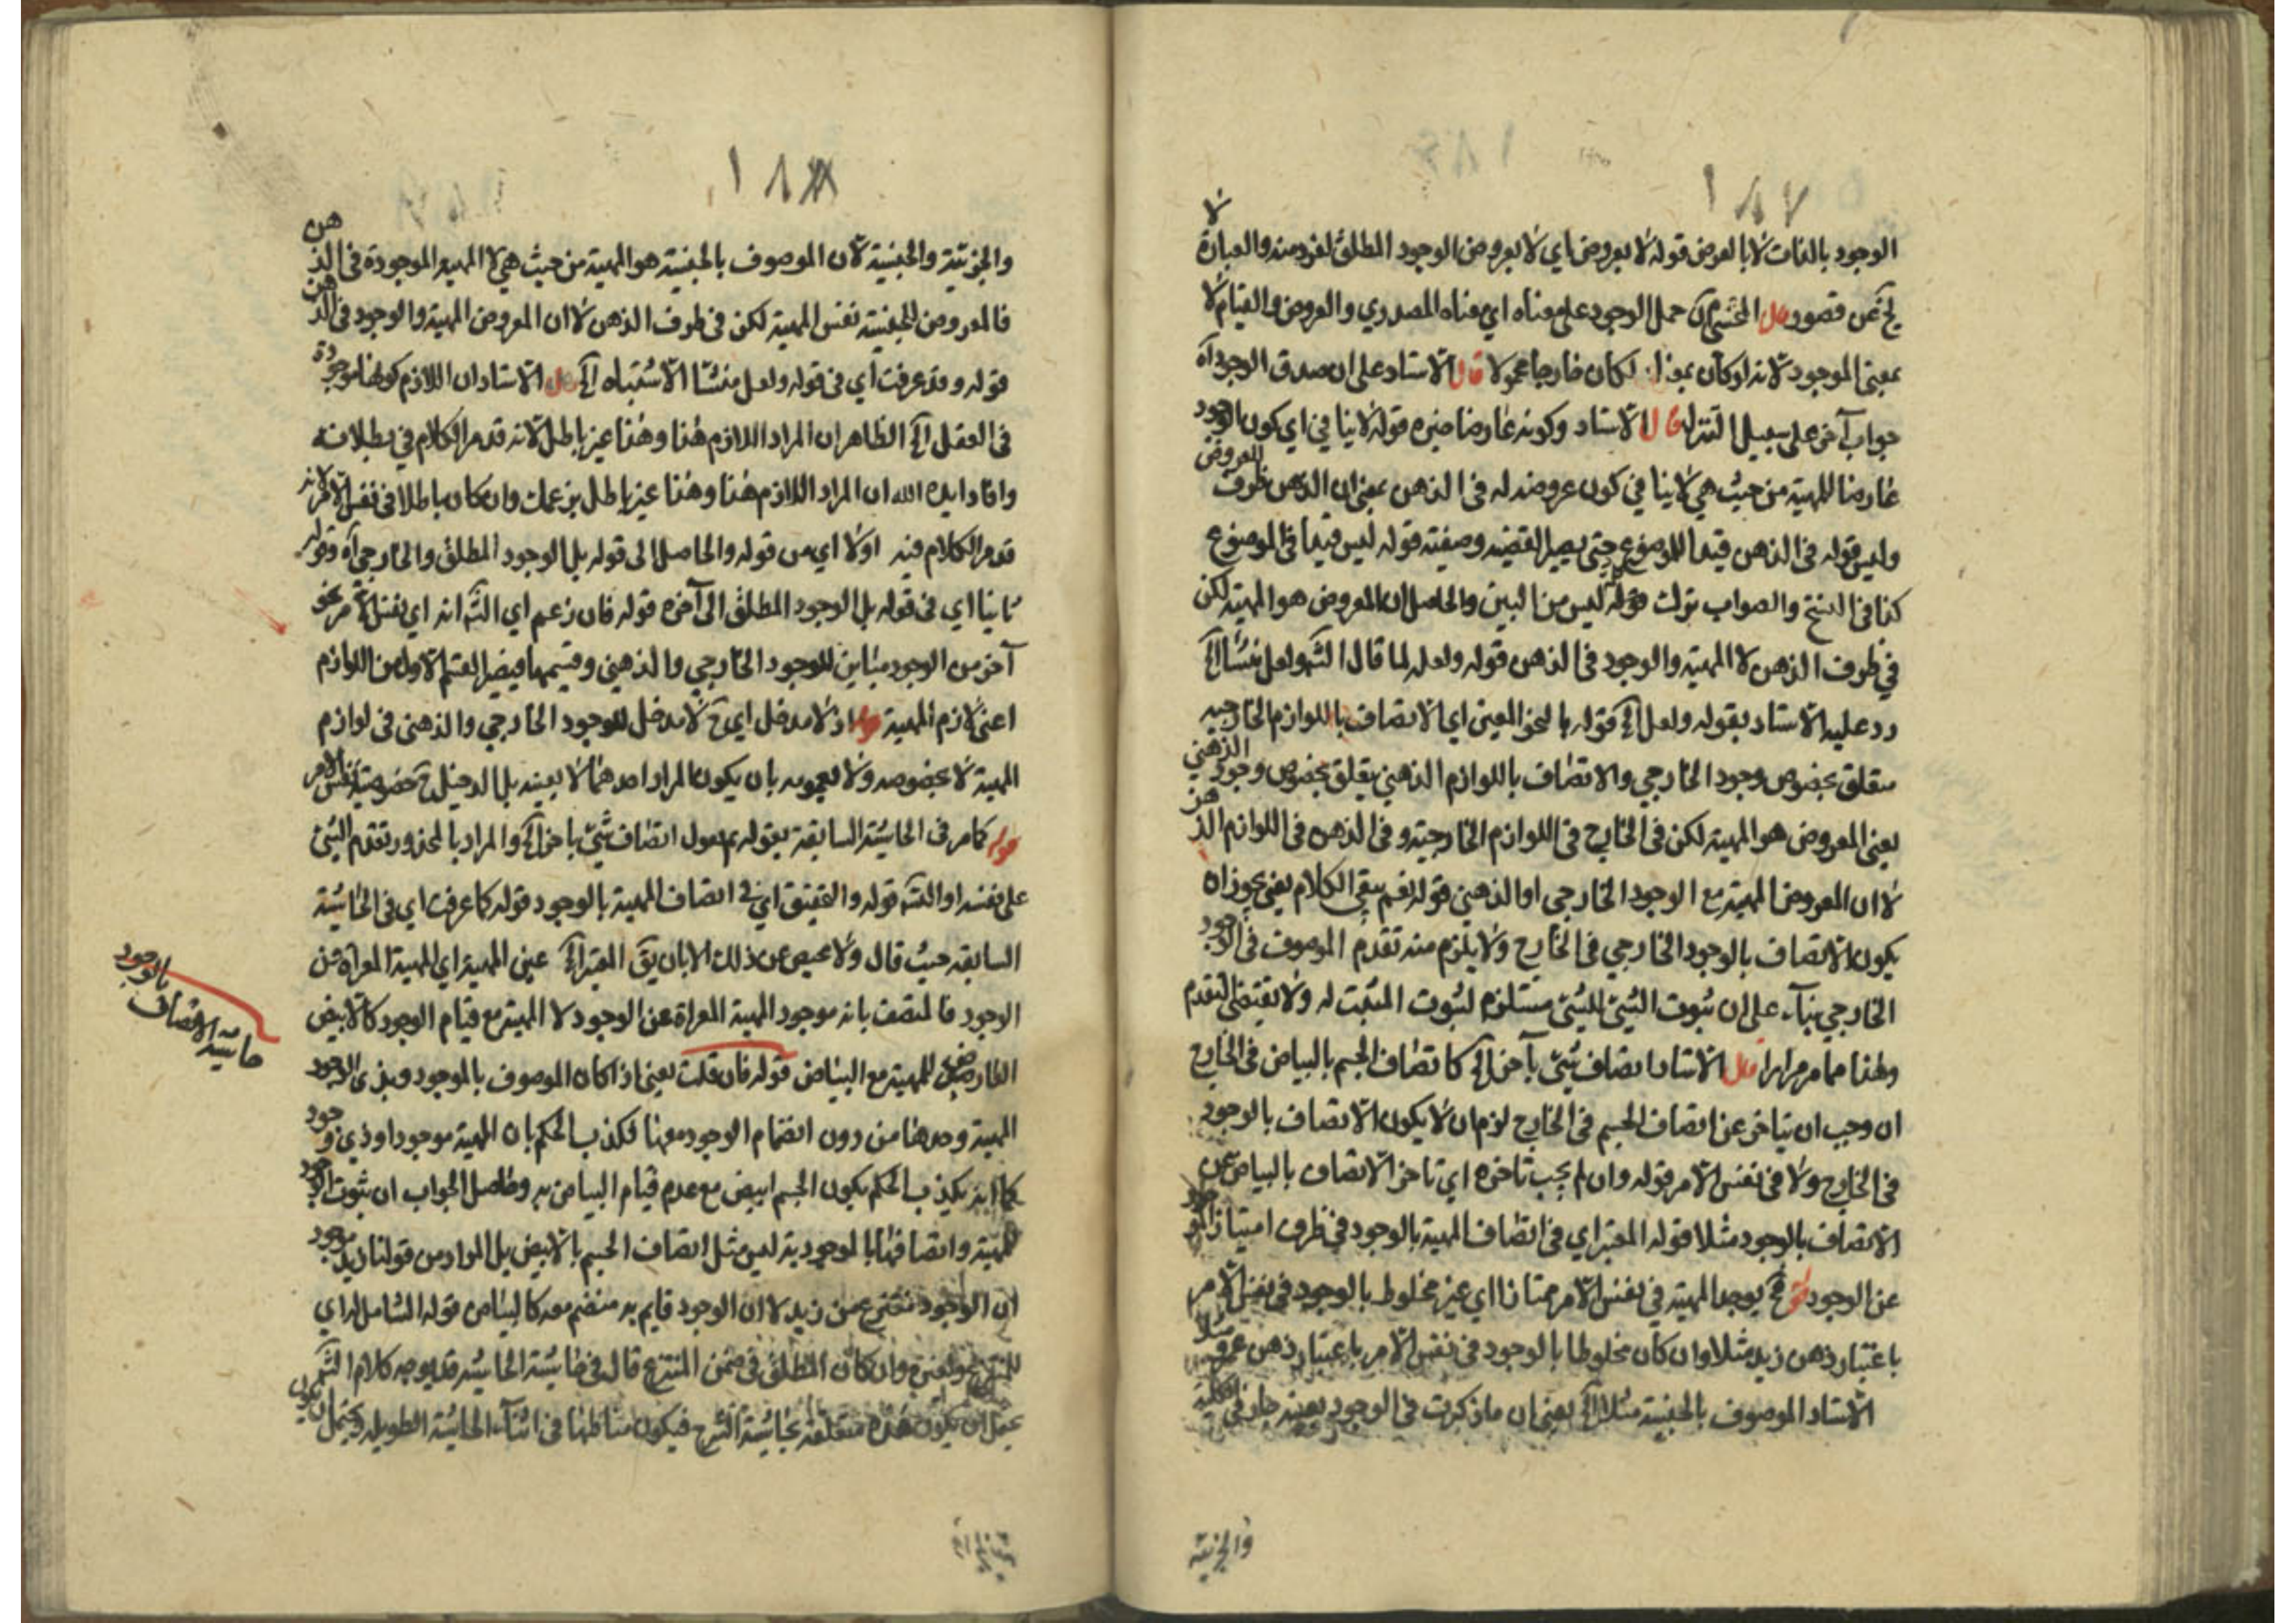 ١٨٧
الوجود بالذات لا بالعرض قوله لا بعروض اي لا بعروض الوجود المطلق لفرد منه والعبارة لا
يخ عن قصور قال المحشي حمل الوجود على معناه اي معناه المصدري والعروض والقيام لا
بمعنى الموجود لانه لو كان بمعناه لكان خارجا محمولا قال الاستاد على ان صدق الوجود آه
جواب آخر على سبيل التنزل قال الاستاد وكونه عارضا قوله لا ينافي اي كون الوجود
عارضا للمهية من حيث هي لا ينافي كون عروضه له في الذهن بمعنى ان الذهن ظرف للعروض
وليس قوله في الذهن قيدا للموضوع حتى يصير القضية وصفية قوله ليس قيدا في الموضوع
كذا في النسخ والصواب ترك قوله ليس من البين والحاصل ان المعروض هو المهية لكن
في ظرف الذهن لا المهية والوجود في الذهن قوله ولعله لما قال الش ولعل منشأ الخ
رد عليه الاستاد بقوله ولعل الخ قوله بالنحو المعين اي الاتصاف باللوازم الخارجيه
متعلق بخصوص وجود الخارجي والاتصاف باللوازم الذهني يتعلق بخصوص وجود الذهني
يعني المعروض هو المهية لكن في الخارج في اللوازم الخارجية وفي الذهن في اللوازم الذهن
لا ان المعروض المهية مع الوجود الخارجي او الذهني قوله نعم يبقى الكلام يعني يجوز ان
يكون الاتصاف بالوجود الخارجي في الخارج ولا يلزم منه تقدم الموصوف في الوجود
الخارجي بناء على ان ثبوت الشئ للشئ مستلزم لثبوت المثبت له ولا يقتضي التقدم
وهذا مما مر مرارا قال الاستاد اتصاف شئ بآخر الخ كاتصاف الجسم بالبياض في الخارج
ان وجب ان يتاخر عن اتصاف الجسم في الخارج لزم ان لا يكون الاتصاف بالوجود
في الخارج ولا في نفس الامر قوله وان لم يجب تاخره اي تاخر الاتصاف بالبياض عن
الاتصاف بالوجود مثلا قوله المعتبر اي في اتصاف المهية بالوجود في ظرف امتياز
عن الوجود يوجد المهية في نفس الامر ممتازا اي غير مخلوط بالوجود في نفس الامر
باعتبار ذهن زيد مثلا وان كان مخلوطا بالوجود في نفس الامر باعتبار ذهن عمرو مثلا
الاستاد الموصوف بالجنسية مثلا الخ يعني ان ما ذكرت في الوجود بعينه جار في الكلية
والجزئية
١٨٨
والجزئية والجنسية لان الموصوف بالجنسية هو المهية من حيث هي لا المهية الموجودة في الذهن
فالمعروض للجنسية نفس المهية لكن في ظرف الذهن لا ان المعروض المهية والوجود في الذهن
قوله وقد عرفت اي في قوله ولعل منشأ الاشتباه الخ قال الاستاد ان اللازم كونها موجودة
في العقل الخ الظاهر ان المراد اللازم هذا وهذا غير باطل لانه قد مر الكلام في بطلانه
وافاد ايده الله ان المراد اللازم هذا وهذا غير باطل بزعمك وان كان باطلا في نفس الامر لانه
قد مر الكلام فيه اولا اي من قوله والحاصل الى قوله بل الوجود المطلق والخارجي آه وقوله
ثانيا اي في قوله بل الوجود المطلق الى آخره قوله فان زعم اي الش انه اي نفس الامر نحو
آخر من الوجود مباين للوجود الخارجي والذهني وقسيمهما فيصير القسم الاول من اللوازم
اعني لازم المهية قوله اذ لا مدخل اي ح لا مدخل للوجود الخارجي والذهني في لوازم
المهية لا بخصوصه ولا بعمومه بان يكون المراد احدهما لا بعينه بل الدخيل ح خصوصية نفس الامر
قوله كما مر في الحاشية السابقة بقوله ثم نقول اتصاف شئ باخر الخ والمراد بالمحذور تقدم الشئ
على نفسه او الش قوله والتحقيق اي في اتصاف المهية بالوجود قوله كما عرفت اي في الحاشية
السابقه حيث قال ولا محيص عن ذلك الا بان يق المعتبر الخ عين المهية اي المهية المعراة عن
الوجود فالمتصف بانه موجود المهية المعراة عن الوجود لا المهية مع قيام الوجود كالابيض
العارض للمهية مع البياض قوله فان قلت يعني اذا كان الموصوف بالموجود وبذي الوجود
المهية وحدها من دون انضمام الوجود معها فكذب الحكم بان المهية موجود او ذي وجود
كما انه يكذب الحكم بكون الجسم ابيض مع عدم قيام البياض به وحاصل الجواب ان ثبوت الوجود
للمهية واتصافها بالموجودية ليس مثل اتصاف الجسم بالابيض بل المراد من قولنا زيد موجود
ان الوجود منتزع من زيد لا ان الوجود قايم به منضم معه كالبياض قوله الشامل له اي
للمنتزع وان كان المطلق في ضمن المنتزع قال في حاشية الحاشية قد يوجه كلام الش
يحتمل ان يكون هذه متعلقة بحاشية الشرح فيكون مناطها في اثناء الحاشية الطويله ويحتمل ان يكون
حاشية الاتصاف بالوجود